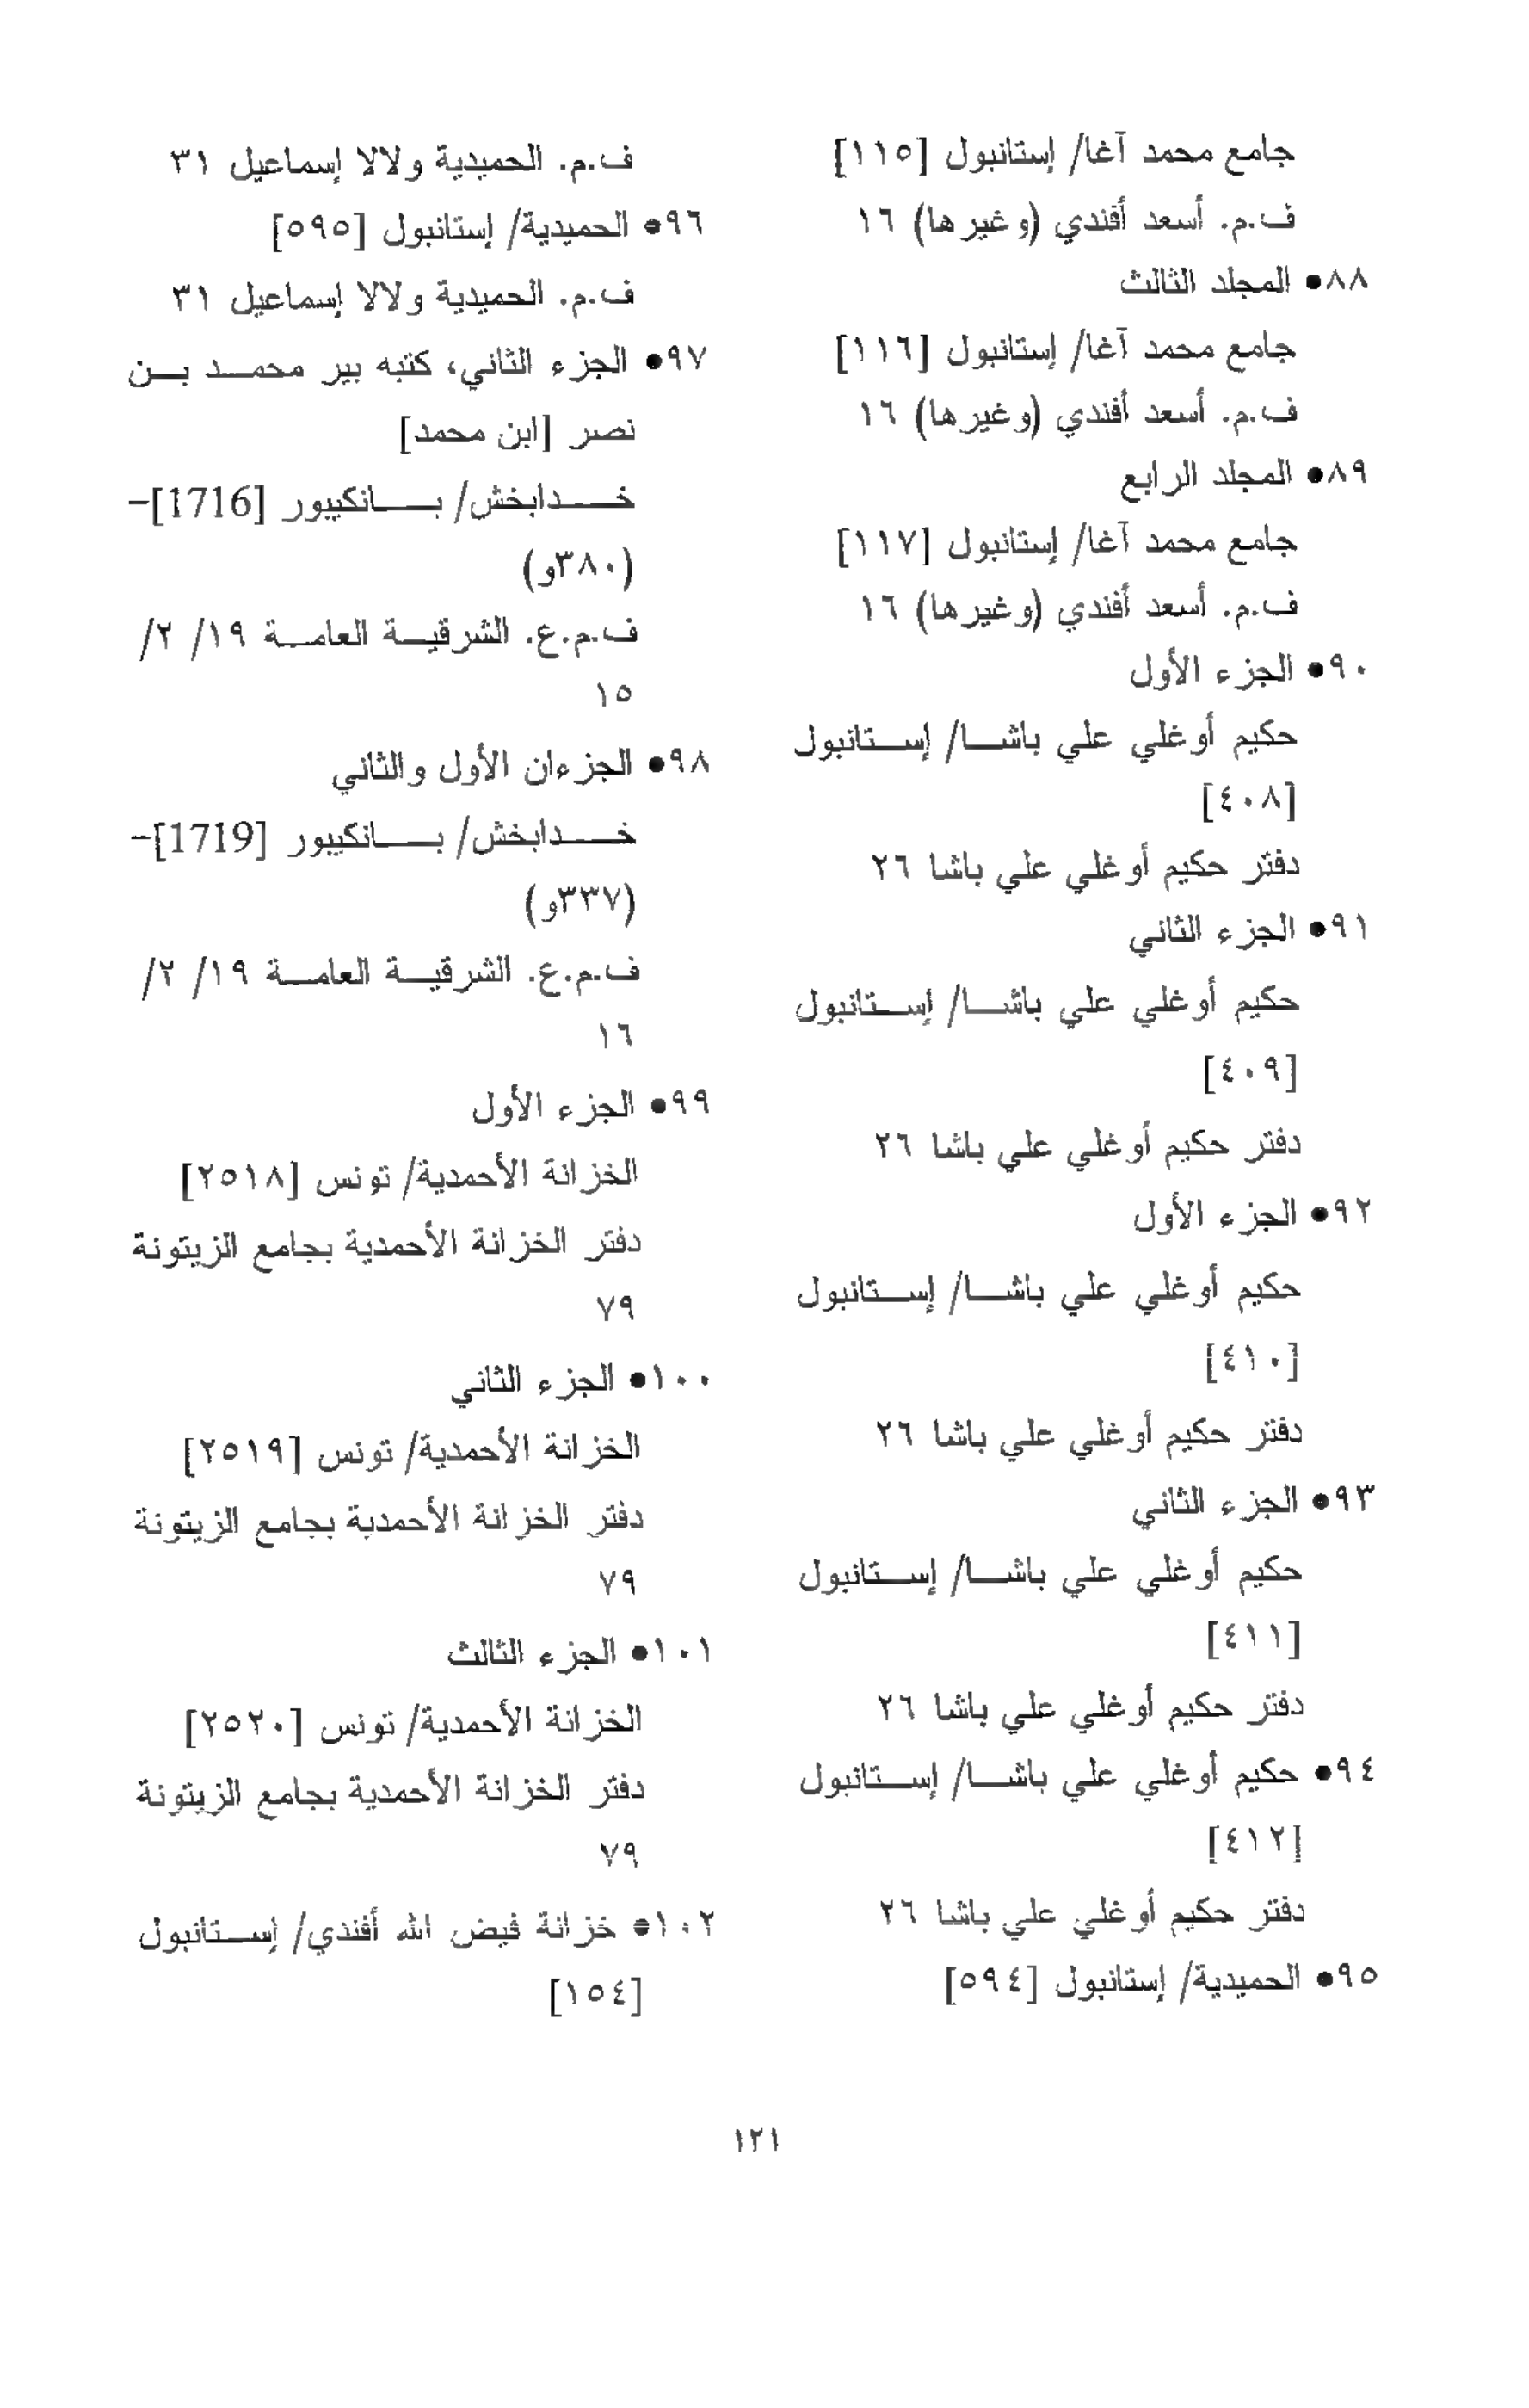 جامع محمد آغا/ إستانبول [١١٥]
ف.م. أسعد أفندي (وغيرها) ١٦
٨٨• المجلد الثالث
جامع محمد آغا/ إستانبول [١١٦]
ف.م. أسعد أفندي (وغيرها) ١٦
٨٩• المجلد الرابع
جامع محمد آغا/ إستانبول [١١٧]
ف.م. أسعد أفندي (وغيرها) ١٦
٩٠• الجزء الأول
حكيم أوغلي علي باشا/ إستانبول
[٤٠٨]
دفتر حكيم أوغلي علي باشا ٢٦
٩١• الجزء الثاني
حكيم أوغلي علي باشا/ إستانبول
[٤٠٩]
دفتر حكيم أوغلي علي باشا ٢٦
٩٢• الجزء الأول
حكيم أوغلي علي باشا/ إستانبول
[٤١٠]
دفتر حكيم أوغلي علي باشا ٢٦
٩٣• الجزء الثاني
حكيم أوغلي علي باشا/ إستانبول
[٤١١]
دفتر حكيم أوغلي علي باشا ٢٦
٩٤• حكيم أوغلي علي باشا/ إستانبول
[٤١٢]
دفتر حكيم أوغلي علي باشا ٢٦
٩٥• الحميدية/ إستانبول [٥٩٤]
ف.م. الحميدية ولالا إسماعيل ٣١
٩٦• الحميدية/ إستانبول [٥٩٥]
ف.م. الحميدية ولالا إسماعيل ٣١
٩٧• الجزء الثاني، كتبه بير محمد بن
نصر [ابن محمد]
خدابخش/ بانكيبور [1716]-
(٣٨٠و)
ف.م.ع. الشرقية العامة ١٩/ ٢/
١٥
٩٨• الجزءان الأول والثاني
خدابخش/ بانكيبور [1719]-
(٣٣٧و)
ف.م.ع. الشرقية العامة ١٩/ ٢/
١٦
٩٩• الجزء الأول
الخزانة الأحمدية/ تونس [٢٥١٨]
دفتر الخزانة الأحمدية بجامع الزيتونة
٧٩
١٠٠• الجزء الثاني
الخزانة الأحمدية/ تونس [٢٥١٩]
دفتر الخزانة الأحمدية بجامع الزيتونة
٧٩
١٠١• الجزء الثالث
الخزانة الأحمدية/ تونس [٢٥٢٠]
دفتر الخزانة الأحمدية بجامع الزيتونة
٧٩
١٠٢• خزانة فيض الله أفندي/ إستانبول
[١٥٤]
١٢١